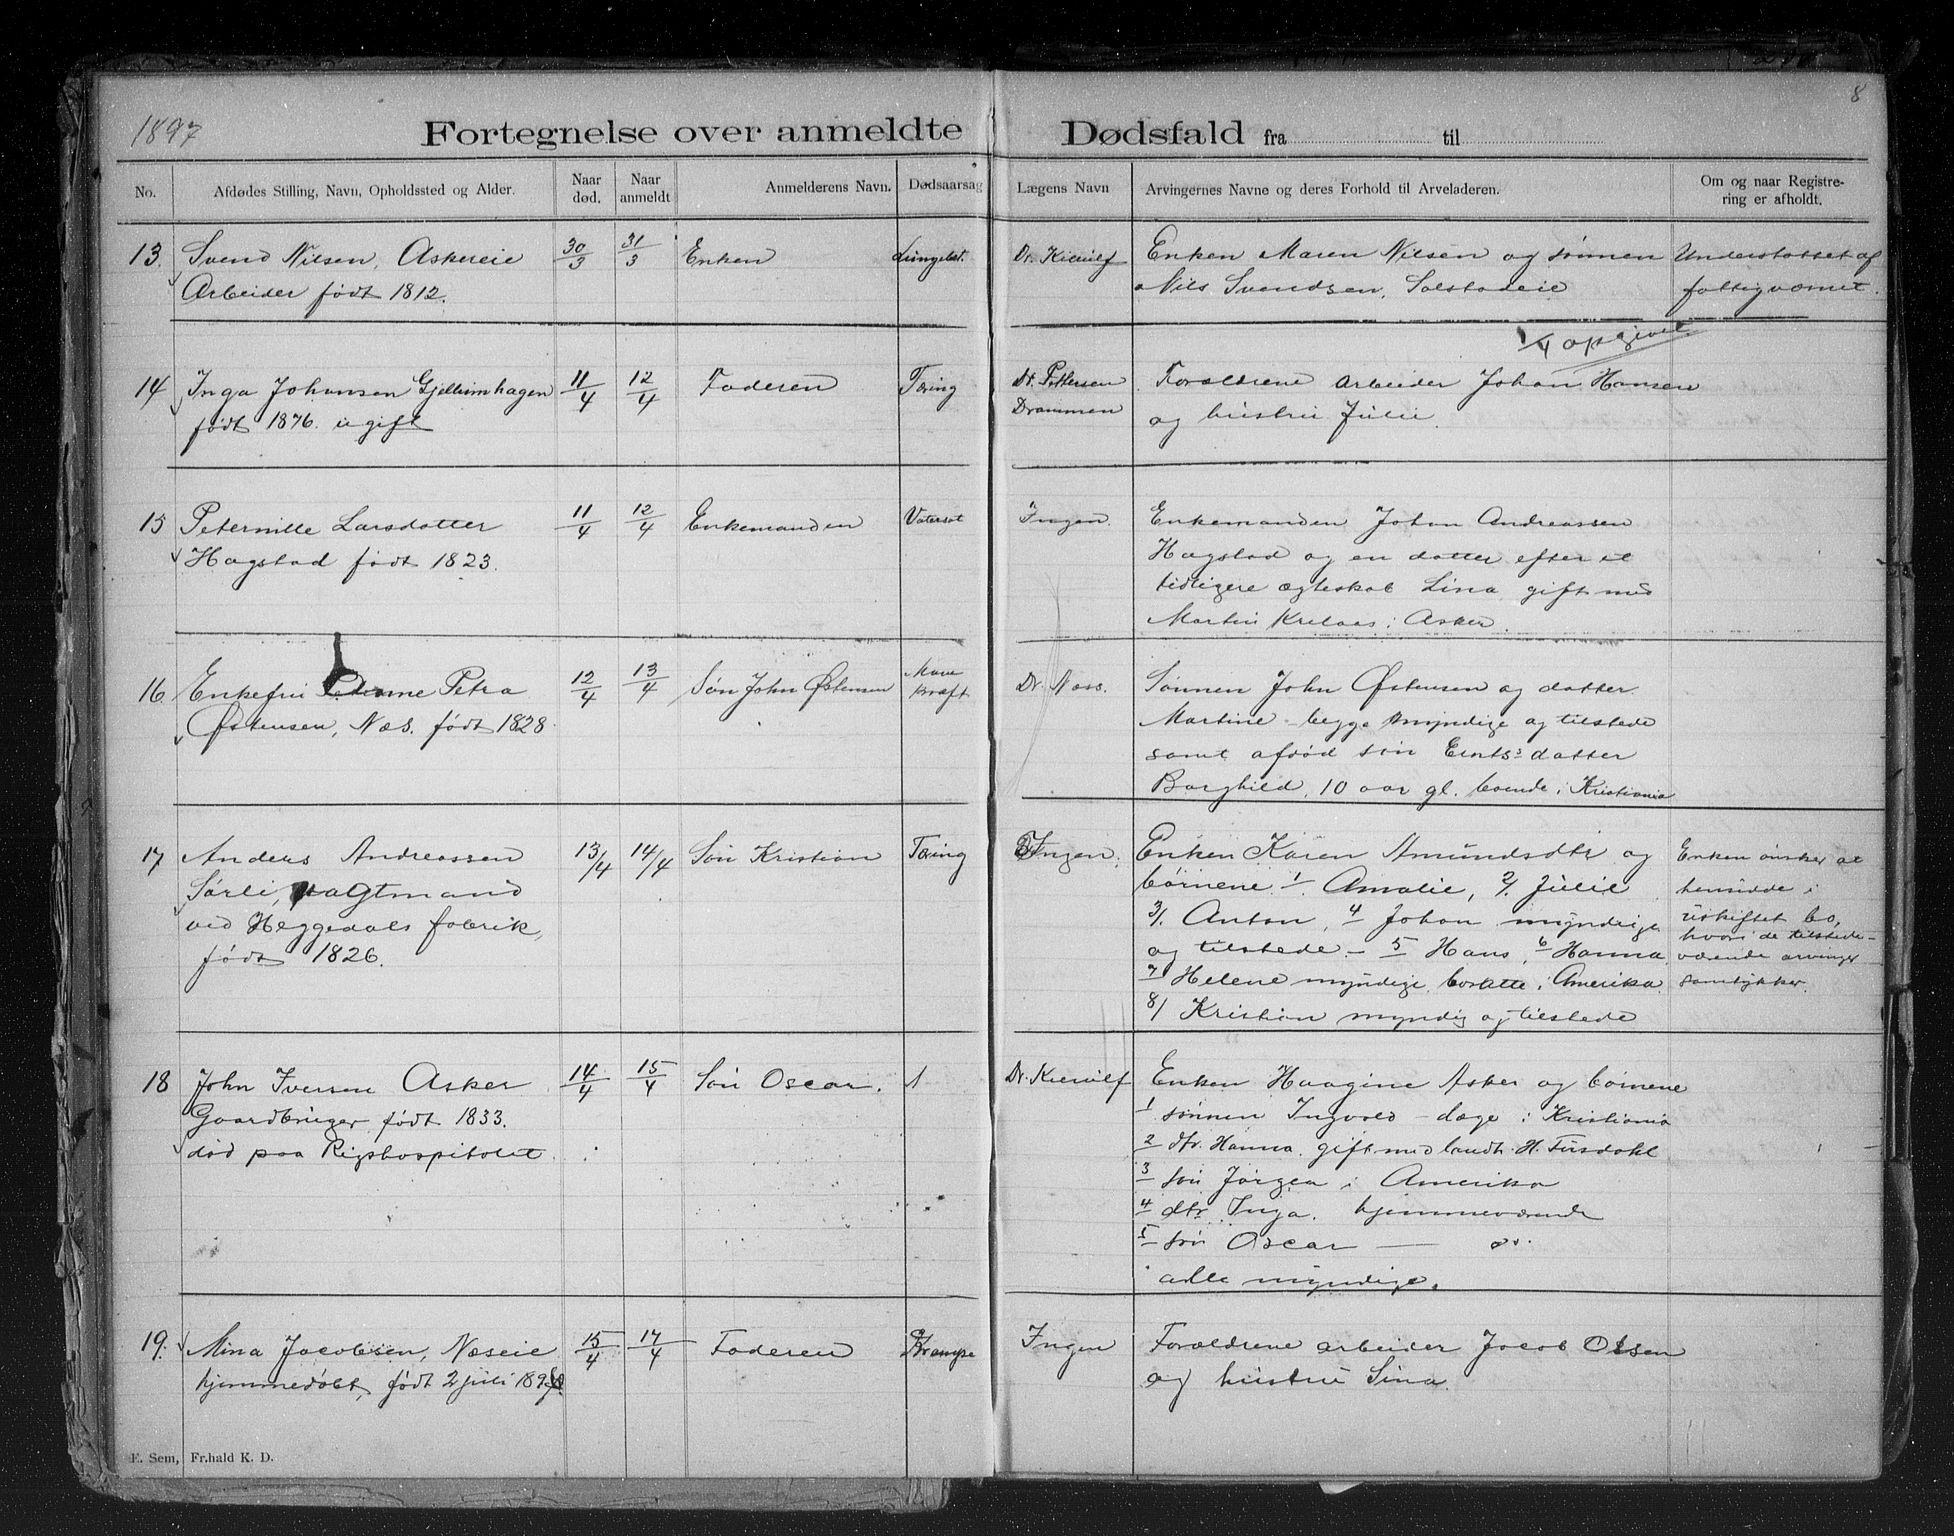 1897
8
Fortegnelse over anmeldte Dødsfald fra til
No. Afdødes Stilling, Navn, Opholdssted og Alder. Naar død. Naar anmeldt Anmelderens Navn. Dødsaarsag Lægens Navn Arvingernes Navne og deres Forhold til Arveladeren. Om og naar Registrering er afholdt.
13. Svend Nilsen, Askereie 30/3 31/3 Enken Dr. Enken Maren Nilsen og sønnen Understøttet af
Arbeider født 1812. Nils Svendsen, Solstadeie fattigvæsnet.
1/4 opgivet
14 Inga Johansen Gjellumhagen 11/4 12/4 Faderen Tæring Dr. Pettersen Forældrene arbeider Johan Hansen
født 1876. ugift Drammen og hustru Julie.
15 Peternille Larsdatter 11/4 12/4 Enkemanden Vatersot Ingen. Enkemanden Johan Andreassen
Hagstad født 1823. Hagstad og en datter efter et
tidligere ægteskab Lina gift med
Martin i Asker.
16. Enkefru Petra 12/4 13/4 Søn John Østensen Mave Dr. Næss. Sønnen John Østensen og datter
Østensen, Næs. født 1828 kræft Martine - begge myndige og tilstede
samt afdød søn datter
Borghild, 10 aar gl. boende i Kristiania
17 Anders Andreassen 13/4 14/4 Søn Kristian Tæring Ingen. Enken Karen Amundsdtr og Enken ønsker at
Sørli, vagtmand børnene 1. Amalie, 2/. Julie hensidde i
ved Heggedals fabrik, 3/. Anton, 4 Johan myndige uskiftet bo,
født 1826. og tilstede. - 5 Hans, 6 Hanna hvori de tilstede-
7 Helene myndige bosatte i Amerika. værende arvinger
8/ Kristian myndig og tilstede samtykker.
18 John Iversen Asker 14/4 15/4 Søn Oscar. Dr. Enken Haagine Asker og børnene
Gaardbruger født 1833. 1 sønnen Ingvald - læge i Kristiania
død paa Rigshospitalet. 2 dtr. Hanna gift med landh. H. Tusdahl
3 søn Jørgen i Amerika
4 dtr Inga. hjemmeværende
5 søn Oscar — do.
alle myndige.
19. Mina Jacobsen, Næseie 15/4 17/4 Faderen Krampe Ingen Forældrene arbeider Jacob Olsen
hjemmedøbt, født 2 juli og hustru Lina.
F. Sem, Fr.hald K. D.